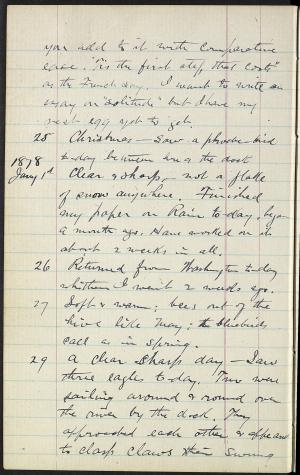 you add to it with comparative
ease. "Tis the first step that costs"
as the French say. I want to write an
essay on "solitude" but I have my
nest egg yet to get.
25 Christmas - Saw a phoebe-bird
to-day between here & the dock
1878
Jany 1st Clear & sharp - not a flake
of snow anywhere. Finished
my paper on Rain to-day, began
a month ago. Have worked on it
about 2 weeks in all.
26 Returned from Washington to-day
whither I went 2 weeks ago.
27 Soft & warm; bees out of the
hive like May; the bluebirds
call as in spring.
29 A clear sharp day - Saw
three eagles to-day. Two were
sailing around & round over
the river by the dock. They
approached each other & appeared
to clasp claws then swung